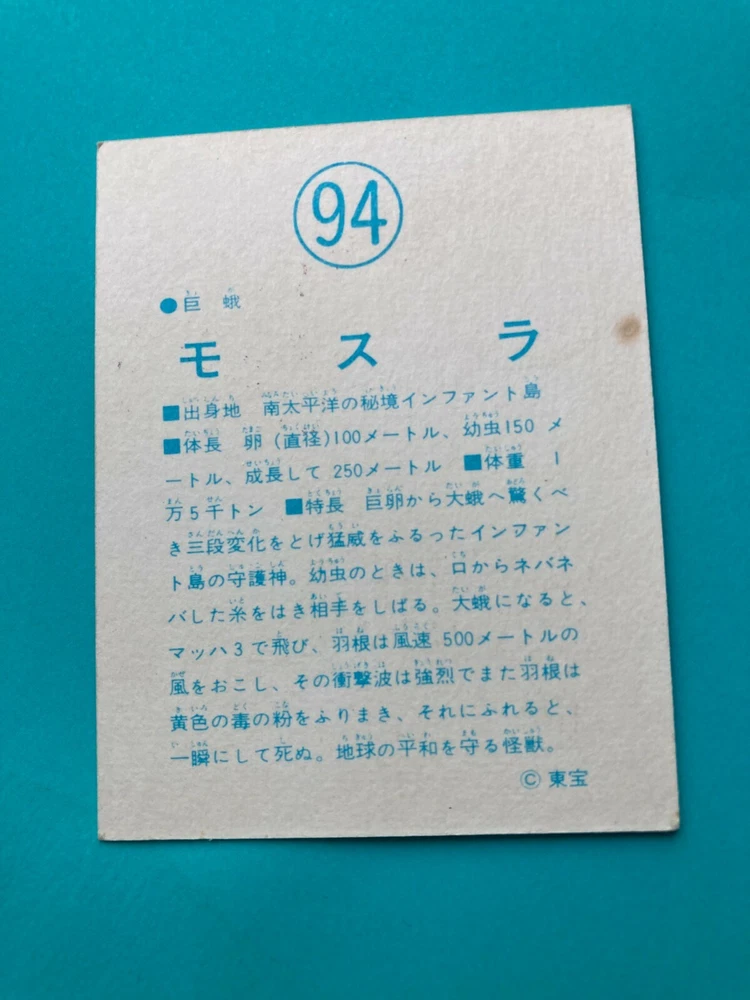 94
●巨蛾
モスラ
■出身地 南太平洋の秘境インファント島
■体長 卵(直径)100メートル、幼虫150メ
ートル、成長して250メートル ■体重 1
万5千トン ■特長 巨卵から大蛾へ驚くべ
き三段変化をとげ猛威をふるったインファン
ト島の守護神。幼虫のときは、口からネバネ
バした糸をはき相手をしばる。大蛾になると、
マッハ3で飛び、羽根は風速500メートルの
風をおこし、その衝撃波は強烈でまた羽根は
黄色の毒の粉をふりまき、それにふれると、
一瞬にして死ぬ。地球の平和を守る怪獣。
©東宝